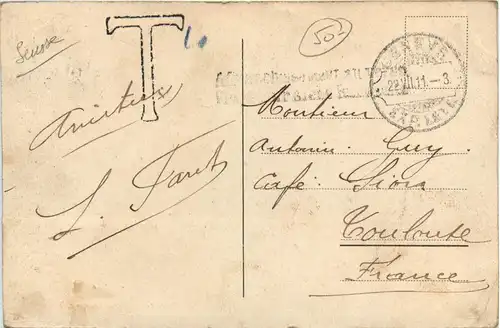 Suisse
T
50-
GENÈVE
22.III.11.-3
Amitiés
L. Faret
Monsieur
Antonin Guy
Café Sion
Toulouse
France